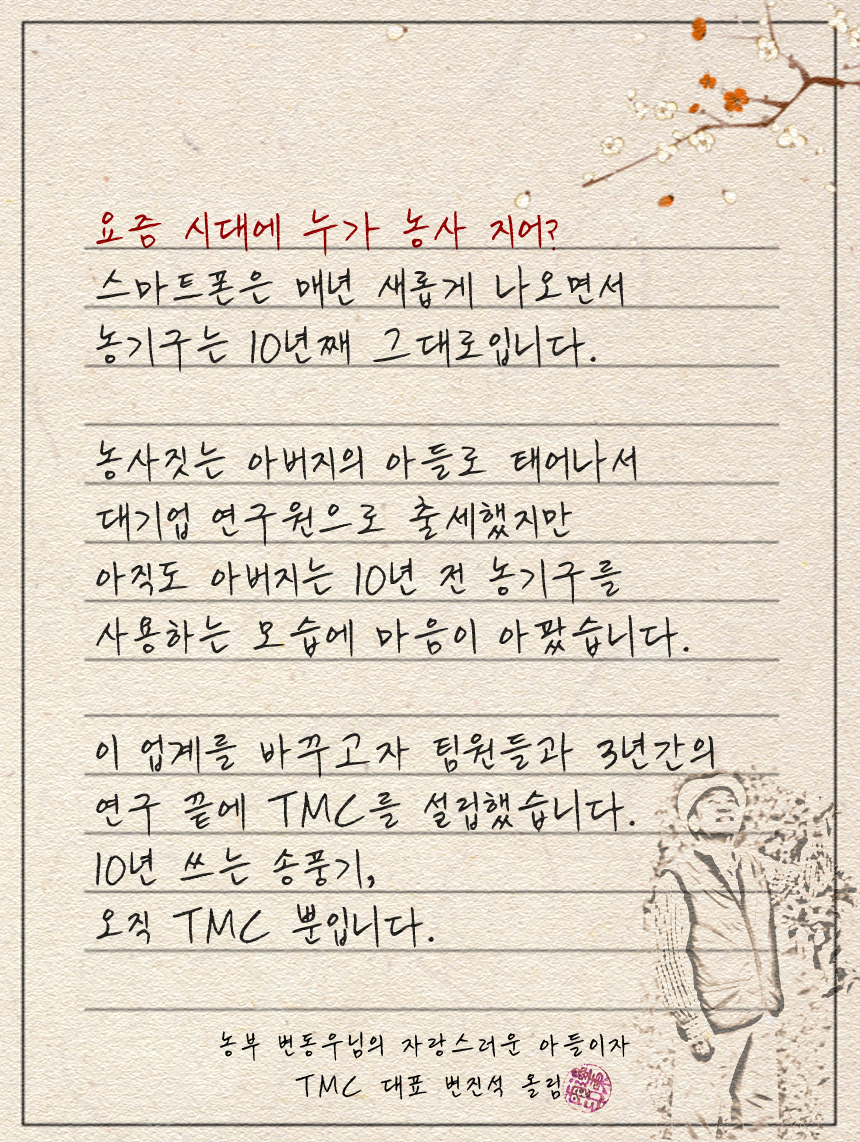 요즘 시대에 누가 농사 지어?
스마트폰은 매년 새롭게 나오면서
농기구는 10년째 그대로입니다.
농사짓는 아버지의 아들로 태어나서
대기업 연구원으로 출세했지만
아직도 아버지는 10년 전 농기구를
사용하는 모습에 마음이 아팠습니다.
이 업계를 바꾸고자 팀원들과 3년간의
연구 끝에 TMC를 설립했습니다.
10년 쓰는 송풍기,
오직 TMC 뿐입니다.
농부 변동우님의 자랑스러운 아들이자
TMC 대표 변진석 올림